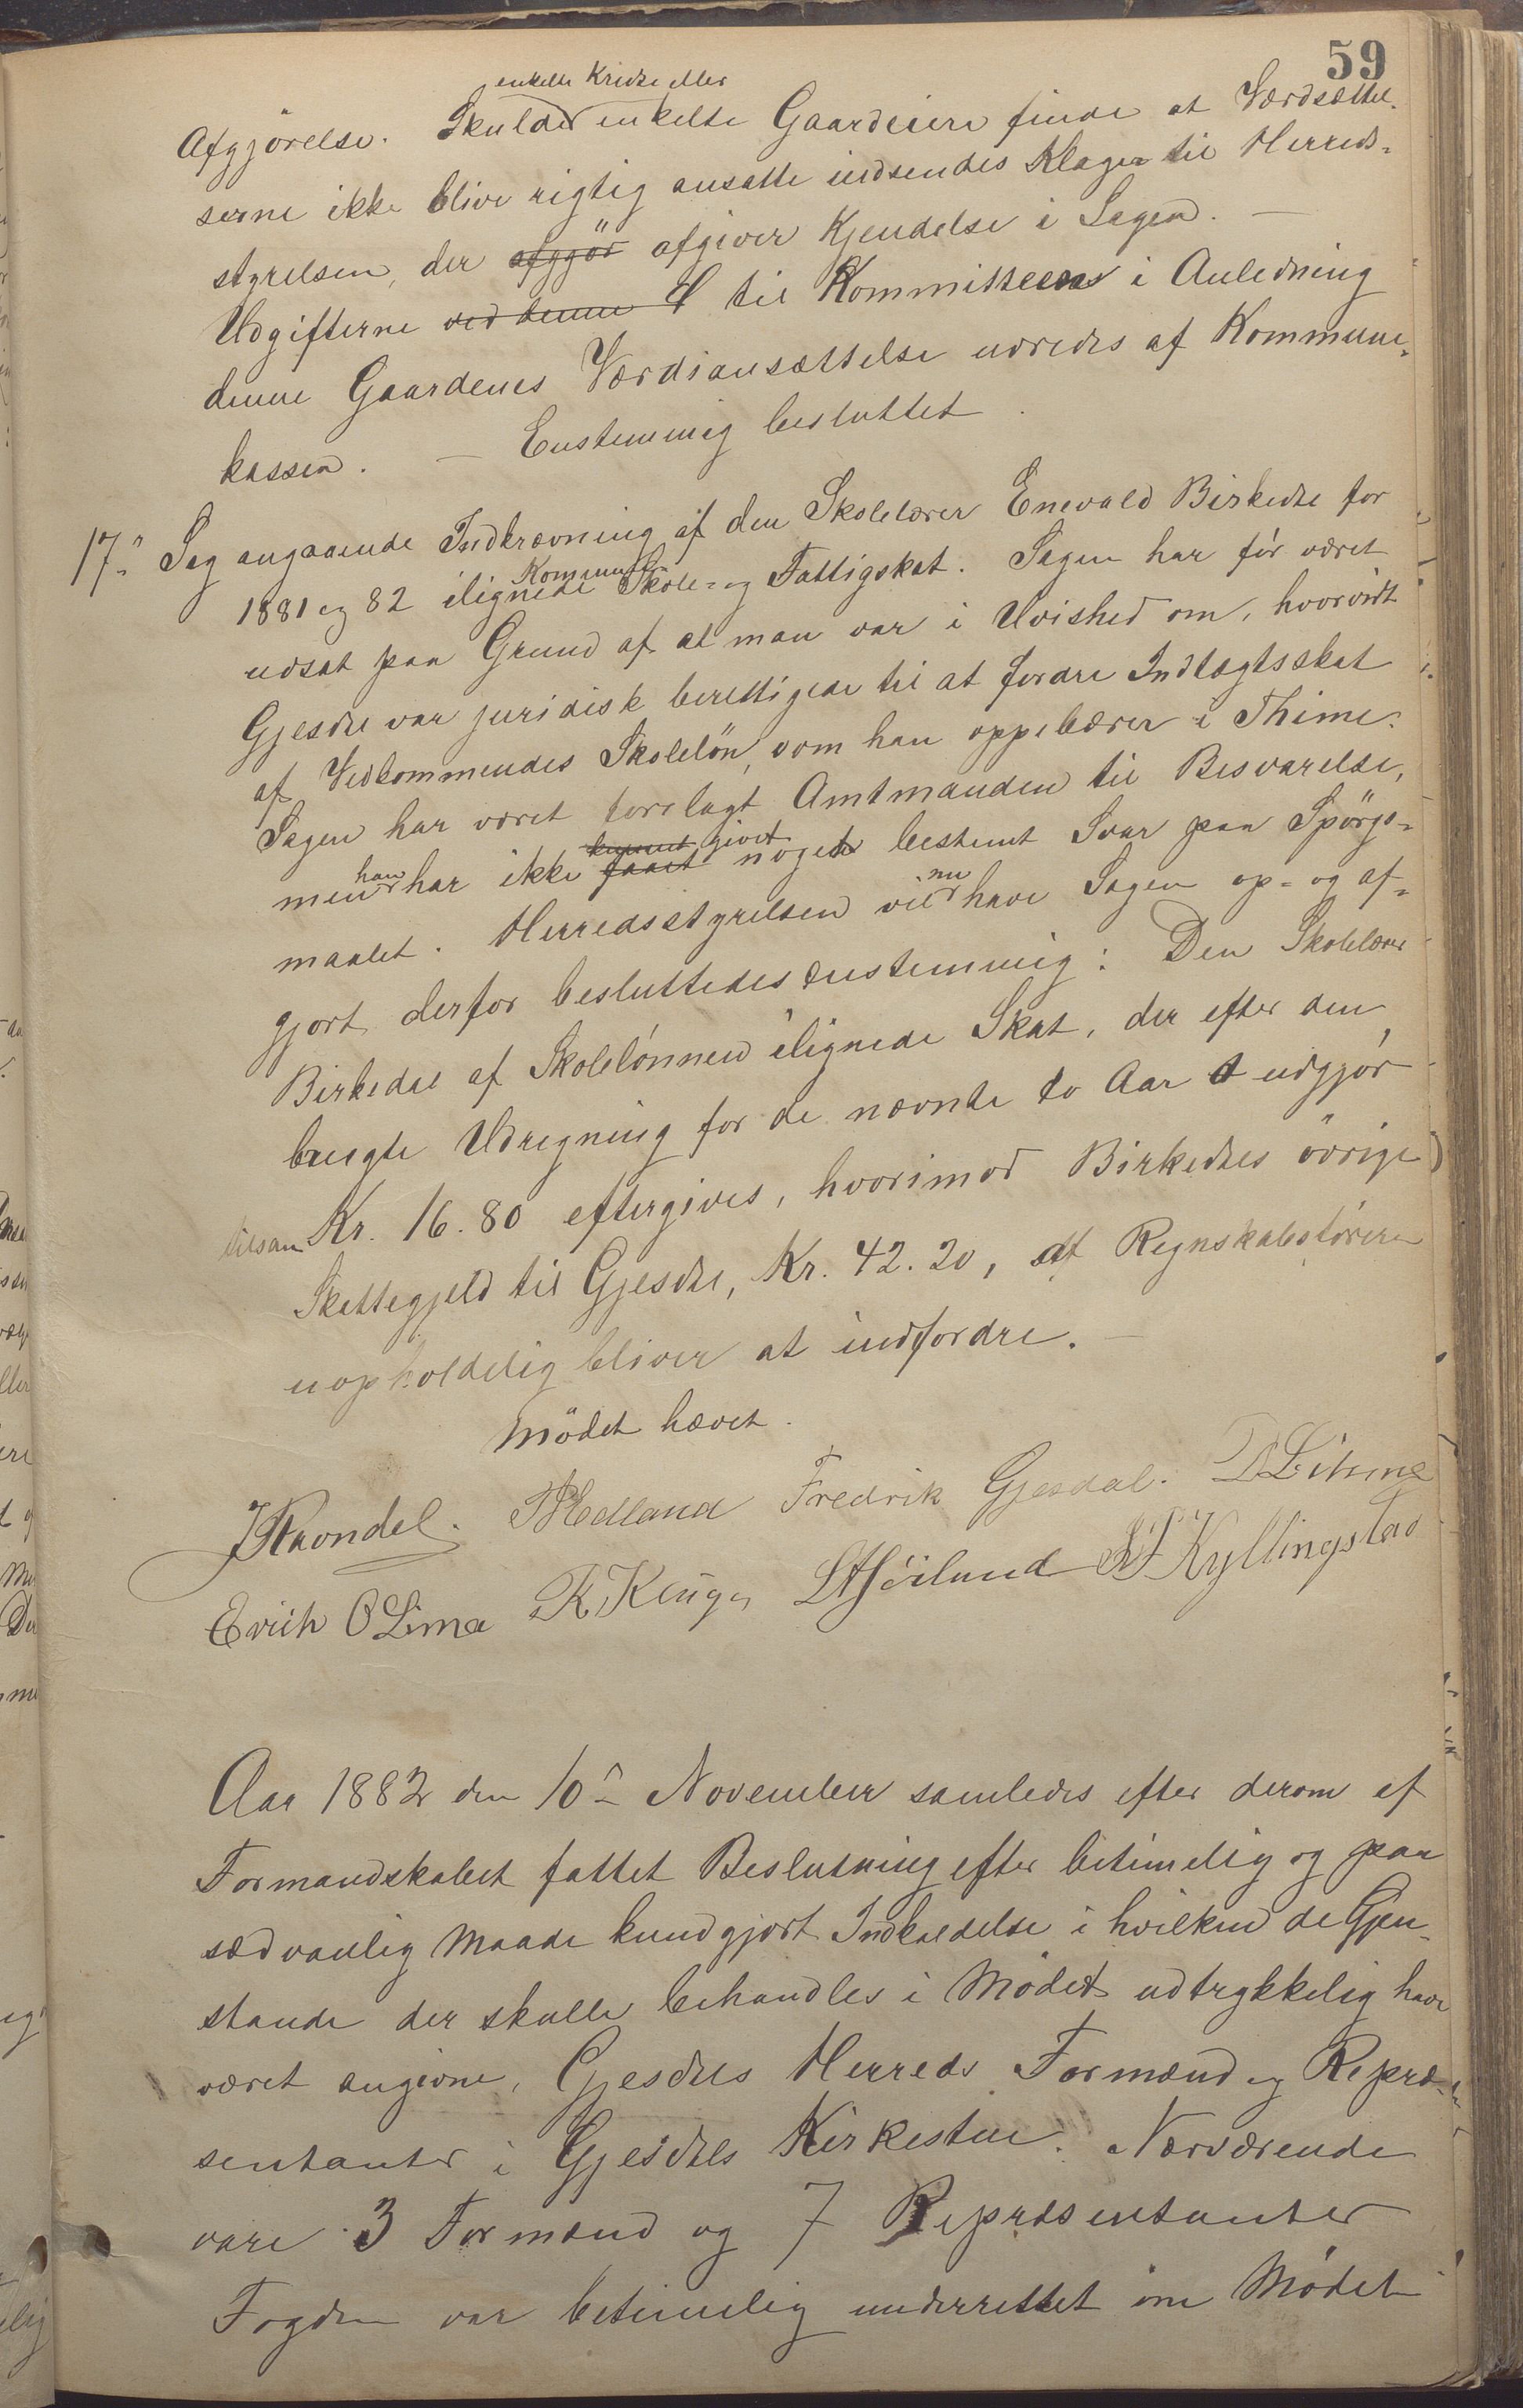 59
enkelte Kredse eller
Afgjörelse. Skulde enkelte Gaardeiere finde at Værdsættel-
serne ikke blive rigtig ansatte indsendes Klager til Herreds-
styrelsen, der afgjör afgiver Kjendelse i Sagen. —
Udgifterne ved denne S til Kommitteens i Anledning
denne Gaardenes Værdiansættelse udredes af Kommune-
kassen. — Enstemmig besluttet.
17. Sag angaaende Indkrævning af den Skolelærer Enevald Birkedse for
Kommune
1881 og 82 ilignede Skole- og Fattigskat. Sagen har för været
udsat paa Grund af at man var i Uvished om, hvorvidt
Gjesdal var juridisk berettigede til at fordre Indtægtsskat
af Vedkommendes Skoleløn, som han oppebærer i Thime.
Sagen har været forelagt Amtmanden til Besvarelse,
han kunnet givet
men har ikke faaet noget bestemt Svar paa Spörgs-
nu
maalet. Herredsstyrelsen vil have Sagen op- og af-
gjort, derfor besluttedes enstemmig: Den Skolelærer
Birkedal af Skolelönnen ilignede Skat, der efter den
brugte Udregning for de nævnte to Aar udgjör
tilsam Kr. 16.80 eftergives, hvorimod Birkedals övrige
Skattegjeld til Gjesdal, Kr. 42.20, af Regnskabsföreren
uopholdelig bliver at indfordre. —
Mödet hævet.
Fredrik Gjesdal. D Lihme
Erich O Lima S T Kyllingstad
Aar 1882 den 10de November samledes efter derom af
Formandskabet fattet Beslutning efter betimelig og paa
sædvanlig Maade kundgjort Indkaldelse i hvilken de Gjen-
stande der skulle behandles i Mödet udtrykkelig have
været angivne, Gjesdals Herreds Formænd og Repræ-
sentanter i Gjesdals Kirkestue. Nærværende
vare 3 Formænd og 7 Repræsentanter
Fogden var betimelig underrettet om Mödet